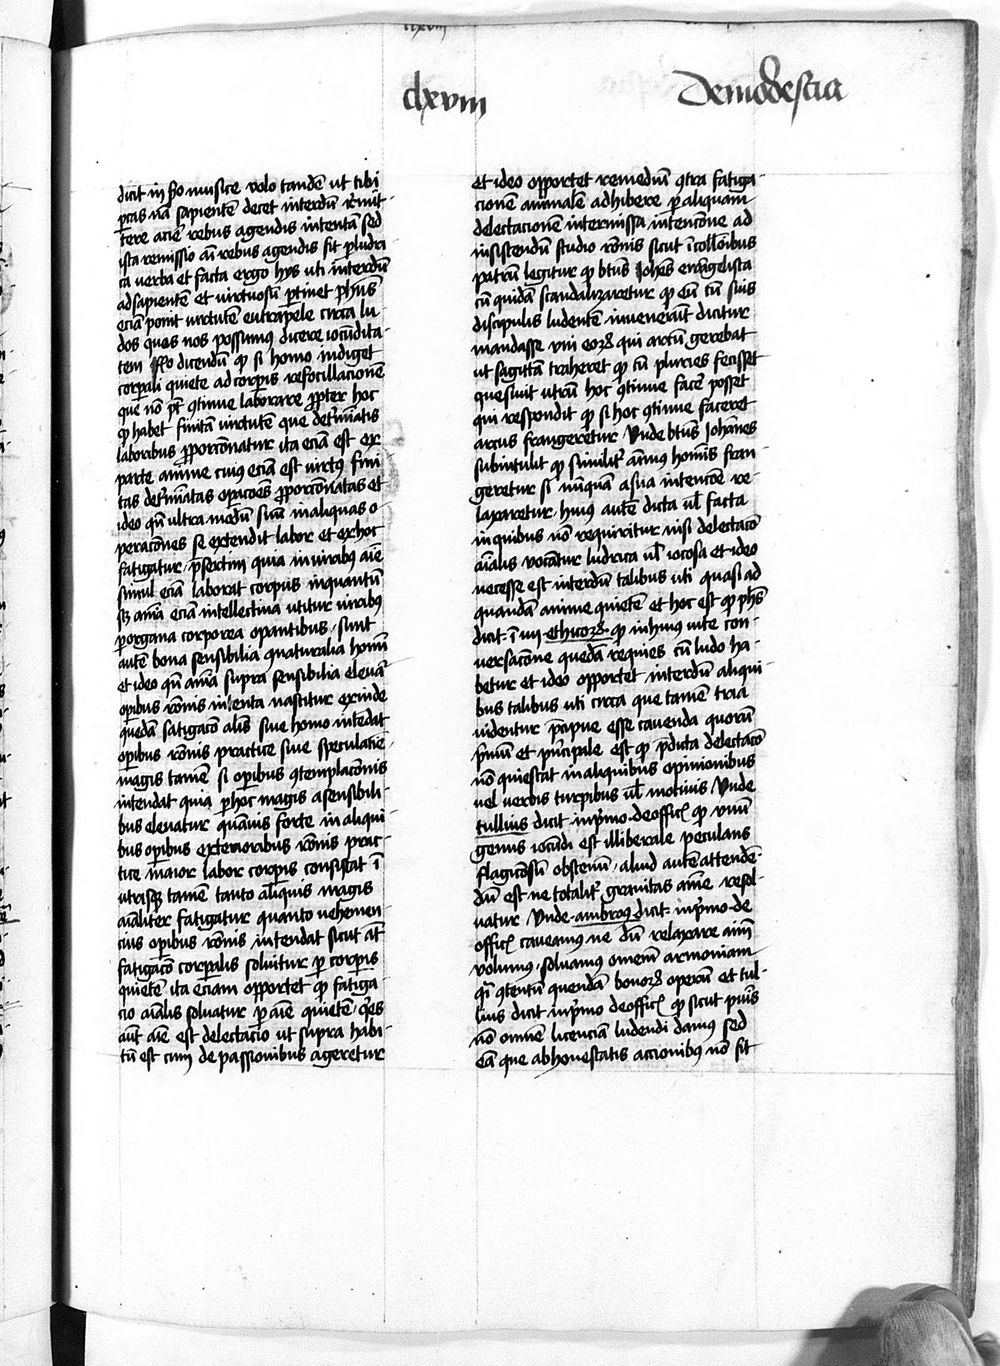 clxviii
De modestia
dicit in ſcđo muſice volo tandē ut tibi
p̱cas nā ſapientē decet interdū r̓mit¬
tere aciē rebus agendis intentā ſed
iſta remiſſio aī rebus agendis fit p̱ ludri¬
ca verba et facta ergo hijs uti interdū
ad ſapientē et virtuoſū p̱tinet p̱hūs
eciā ponit virtutē eutrapele circa lu¬
dos quos nos poſſumus dicere iocūdita¬
tem R̄ſo dicendū ꝙ ſi homo indiget
corp̱ali quiete ad corp̱is refocillacionē
que nō pt̄ ꝯtinue laborare ꝓpter hoc
ꝙ habet finitā virtutē que det̓minatis
laboribus ꝓporcōnatur ita eciā eſt ex
parte anime cuius eciā eſt virtꝰ fini¬
tas det̓minatas oꝑacōes ꝓporcōnatas et
ideo qn̄ ultra modū ſuū in aliquas o¬
peracōnes ſe extendit labor et ex hoc
fatigatur p̄ſertim quia in viribꝰ aīe
ſimul eciā laborat corpus inquantū
ſꝫ aīa eciā intellectiua utitur viribꝰ
p̱ organa corporea oꝑantibus ſunt
autē bona ſenſibilia ꝯnaturalia homī
et ideo qn̄ aīa ſupra ſenſibilia eleuat̄
oꝑibus rōnis intenta naſcitur exinde
quedā fatigacō aīalis ſiue homo intēdat
oꝑibus rōnis practice ſiue ſpeculatiē
magis tamē ſi oꝑibus ꝯtemplacōnis
intendat quia p̱ hoc magis a ſenſibili¬
bus eleuatur quāuis forte in aliqui¬
bus oꝑibus exterioribus rōnis prac¬
tice maior labor corp̱is conſiſtat ī
utriſqꝫ tamē tanto aliquis magis
aīaliter fatigatur quanto uehemen¬
cius oꝑibus rōnis intendat ſicut aūt
fatigacō corp̱alis ſoluitur p̱ corp̱is
quietē ita eciam opportet ꝙ fatiga¬
cio aīalis ſoluatur p̱ aīe quietē qͥes
aūt aīe eſt delectacio ut ſupra habi¬
tū eſt cum de paſſionibus ageretur
et ideo opportet remediū ꝯtra fatiga¬
cionē animalē adhibere p̱ aliquam
delectacionē intermiſſa intencōne ad
inſiſtendū ſtudio rōnis ſicut ī coll̄onibus
patrū legitur ꝙ btūs Johēs ewāgeliſta
cū quidā ſcandalizaretur ꝙ eū cū ſuis
diſcipulis ludentē inuenerāt dicitur
mandaſſe vni eoꝝ qui arcū gerebat
ut ſagittā traheret ꝙ cū pluries feciſſet
queſiuit utrū hoc ꝯtinue facē poſſet
qui reſpondit ꝙ ſi hoc ꝯtinue faceret
arcus frangeretur Unde btūs Johānes
ſubintulit ꝙ ſimilit̓ aīmus homīs fran¬
geretur ſi nūquā a ſua intencōe re¬
laxaretur huius autē dicta ul̄ facta
in quibus nō requiritur niſi delectacō
aīalis vocātur ludrica ul̄ iocoſa et ideo
neceſſe eſt interdū talibus uti quaſi ad
quandā anime quietē et hoc eſt ꝙ ph̄s
dicit ī iiii ethicoꝝ ꝙ in huius uite con¬
verſacōne quedā requies cū ludo ha¬
betur et ideo opportet interdū aliqui¬
bus talibus uti circa que tamē tria
uidentur p̄cipue eſſe cauenda quorū
p̓mū et p̓ncipale eſt ꝙ p̄dicta delectacō
nō querat̓ in aliquibus opinionibus
vel verbis turpibus ul̄ motiuis Unde
tullius dicit in p̓mo de officˢ ꝙ vnū
genus iocūdi eſt illiberale petulans
flagicōſū obſtenū aliud autē attendē¬
dū eſt ne totalit̓ grauitas aīme reſol¬
uatur Unde ambroꝰ dicit in p̓mo de
officˢ caueamus ne dū relaxare aīm
volumꝰ ſoluamus omnē armoniam
qͣſi ꝯcentū quendā bonoꝝ operū et tul¬
lius dicit in p̓mo de officˢ ꝙ ſicut pu̓is
nō omnē licenciā ludendi damꝰ ſed
eā que ab honeſtatis accionibꝰ nō ſit